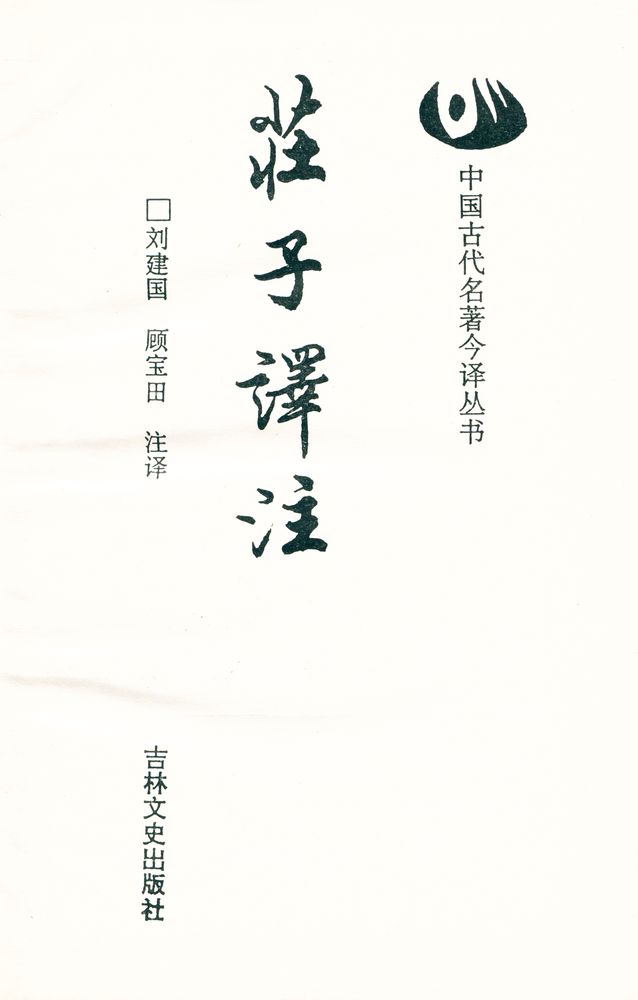 中国古代名著今译丛书
莊子譯注
□刘建国 顾宝田 注译
吉林文史出版社